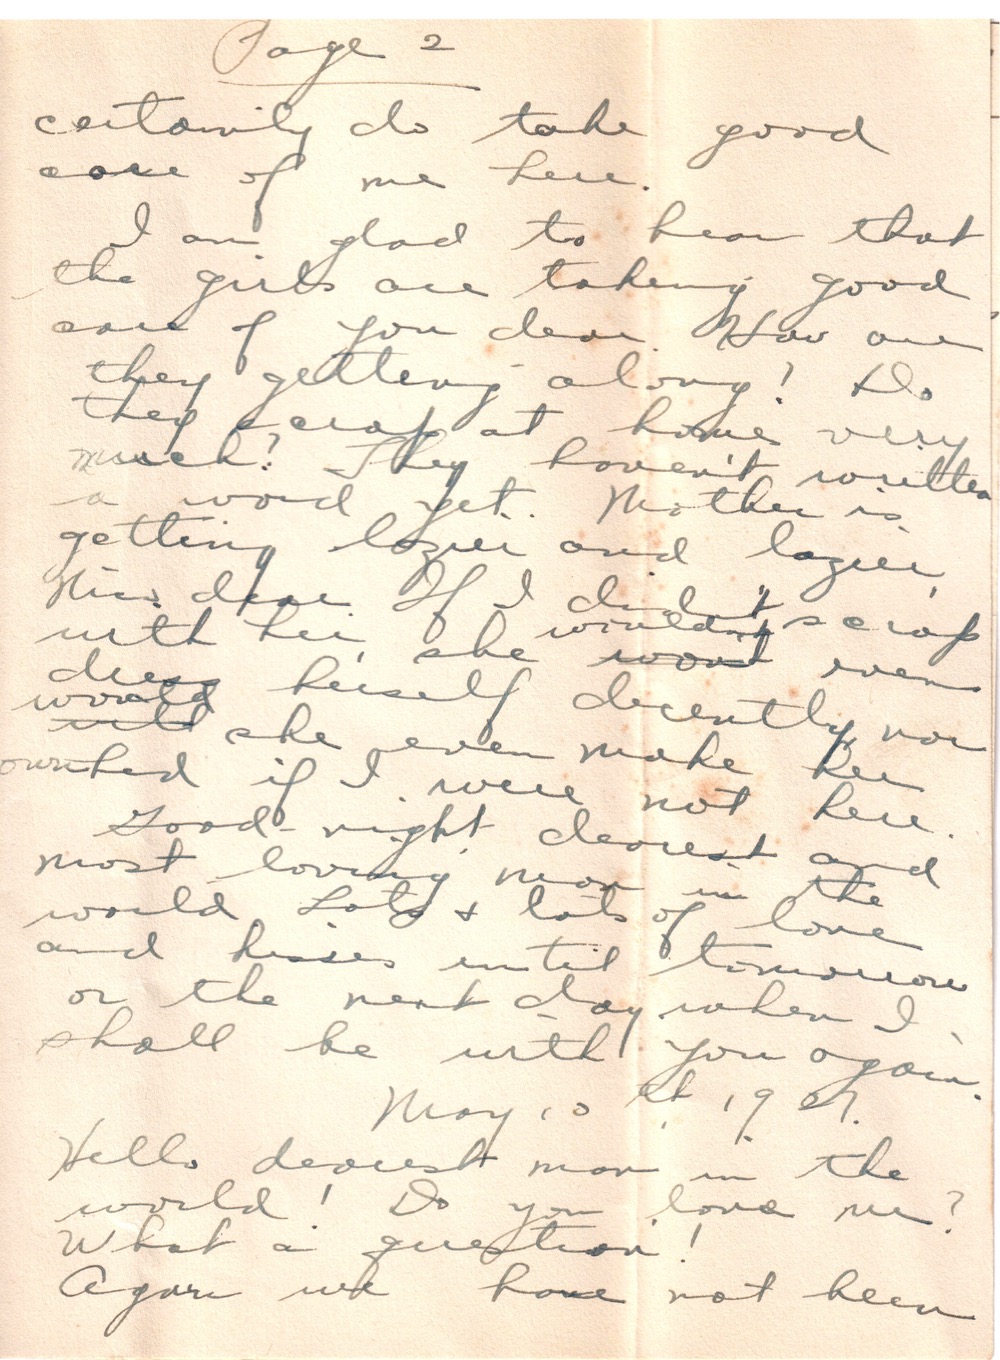 Page 2
certainly do take good
care of me here.
I am glad to hear that
the girls are taking good
care of you dear. How are
they getting along? Do
they scrap at home very
much? They haven't written
a word yet. Mother is
getting lazier and lazier,
dear. If I didn't scrap
with her, she wouldn't even
dress herself decently nor
would she even make her
own bed if I were not here.
Good-night dearest and
most loving man in the
world. Lots & lots of love
and kisses until tomorrow
or the next day when I
shall be with you again.
May 10th, 1927.
Hello dearest man in the
world! Do you love me?
What a question!
Again we have not been